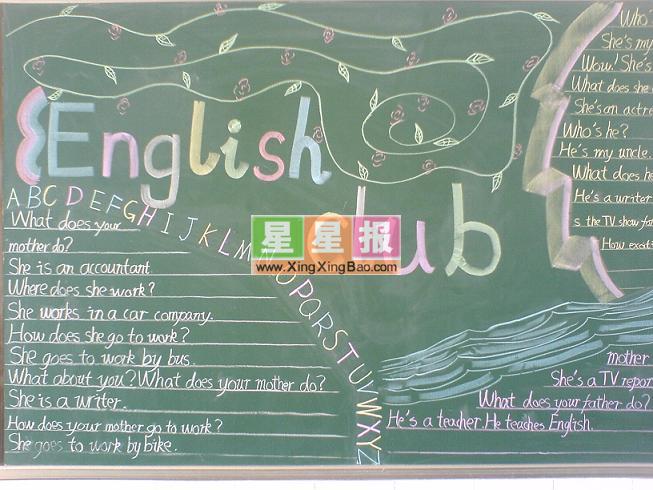 English club
ABCDEFGHIJKLM OPQRSTUVWXYZ
What does your
mother do?
She is an accountant
Where does she work?
She works in a car company.
How does she go to work?
She goes to work by bus.
What about you? What does your mother do?
She is a writer.
How does your mother go to work?
She goes to work by bike.
星星报
www.XingXingBao.com
Who's
She's my
Wow! She's
What does she
She's an actre
Who's he?
He's my uncle.
What does he
He's a writer
s the TV show
How excit
mother
She's a TV report
What does your father do?
He's a teacher. He teaches English.